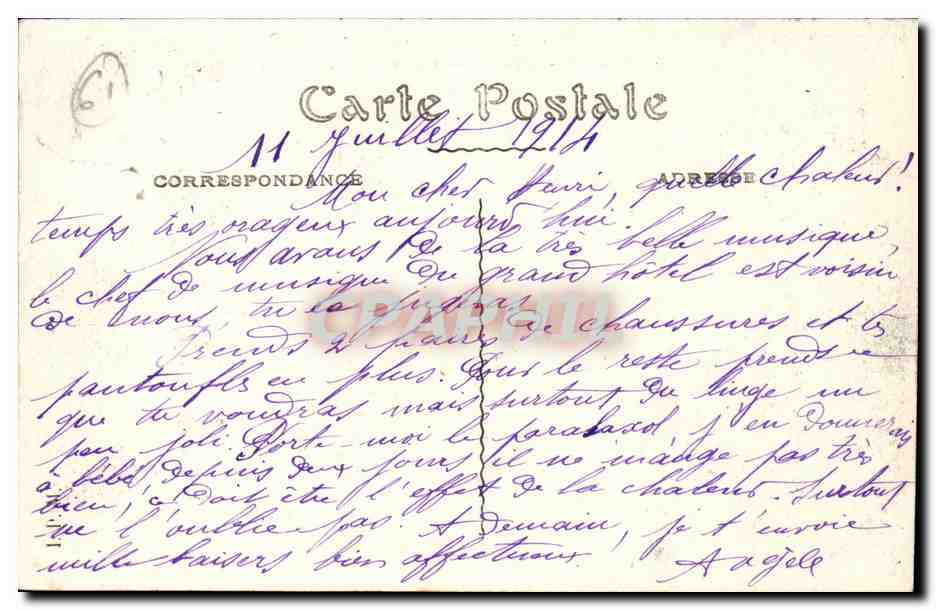 61
Carte Postale
11 Juillet 1914
CORRESPONDANCE
ADRESSE
Mon cher Henri, quelle chaleur!
temps très orageux aujourd'hui.
Nous avons de la très belle musique,
le chef de musique du grand hôtel est voisin
de nous, tu
CPAPHIL
Prends 2 paires de chaussures et tes
pantoufles en plus. Pour le reste prends ce
que tu voudras mais surtout du linge un
peu joli. Porte-moi le paralaxol j'en donnerais
à bébé, depuis deux jours il ne mange pas très
bien, ça doit être l'effet de la chaleur. Surtout
ne l'oublie pas. A demain, je t'envoie
mille baisers bien affectueux.
Angèle